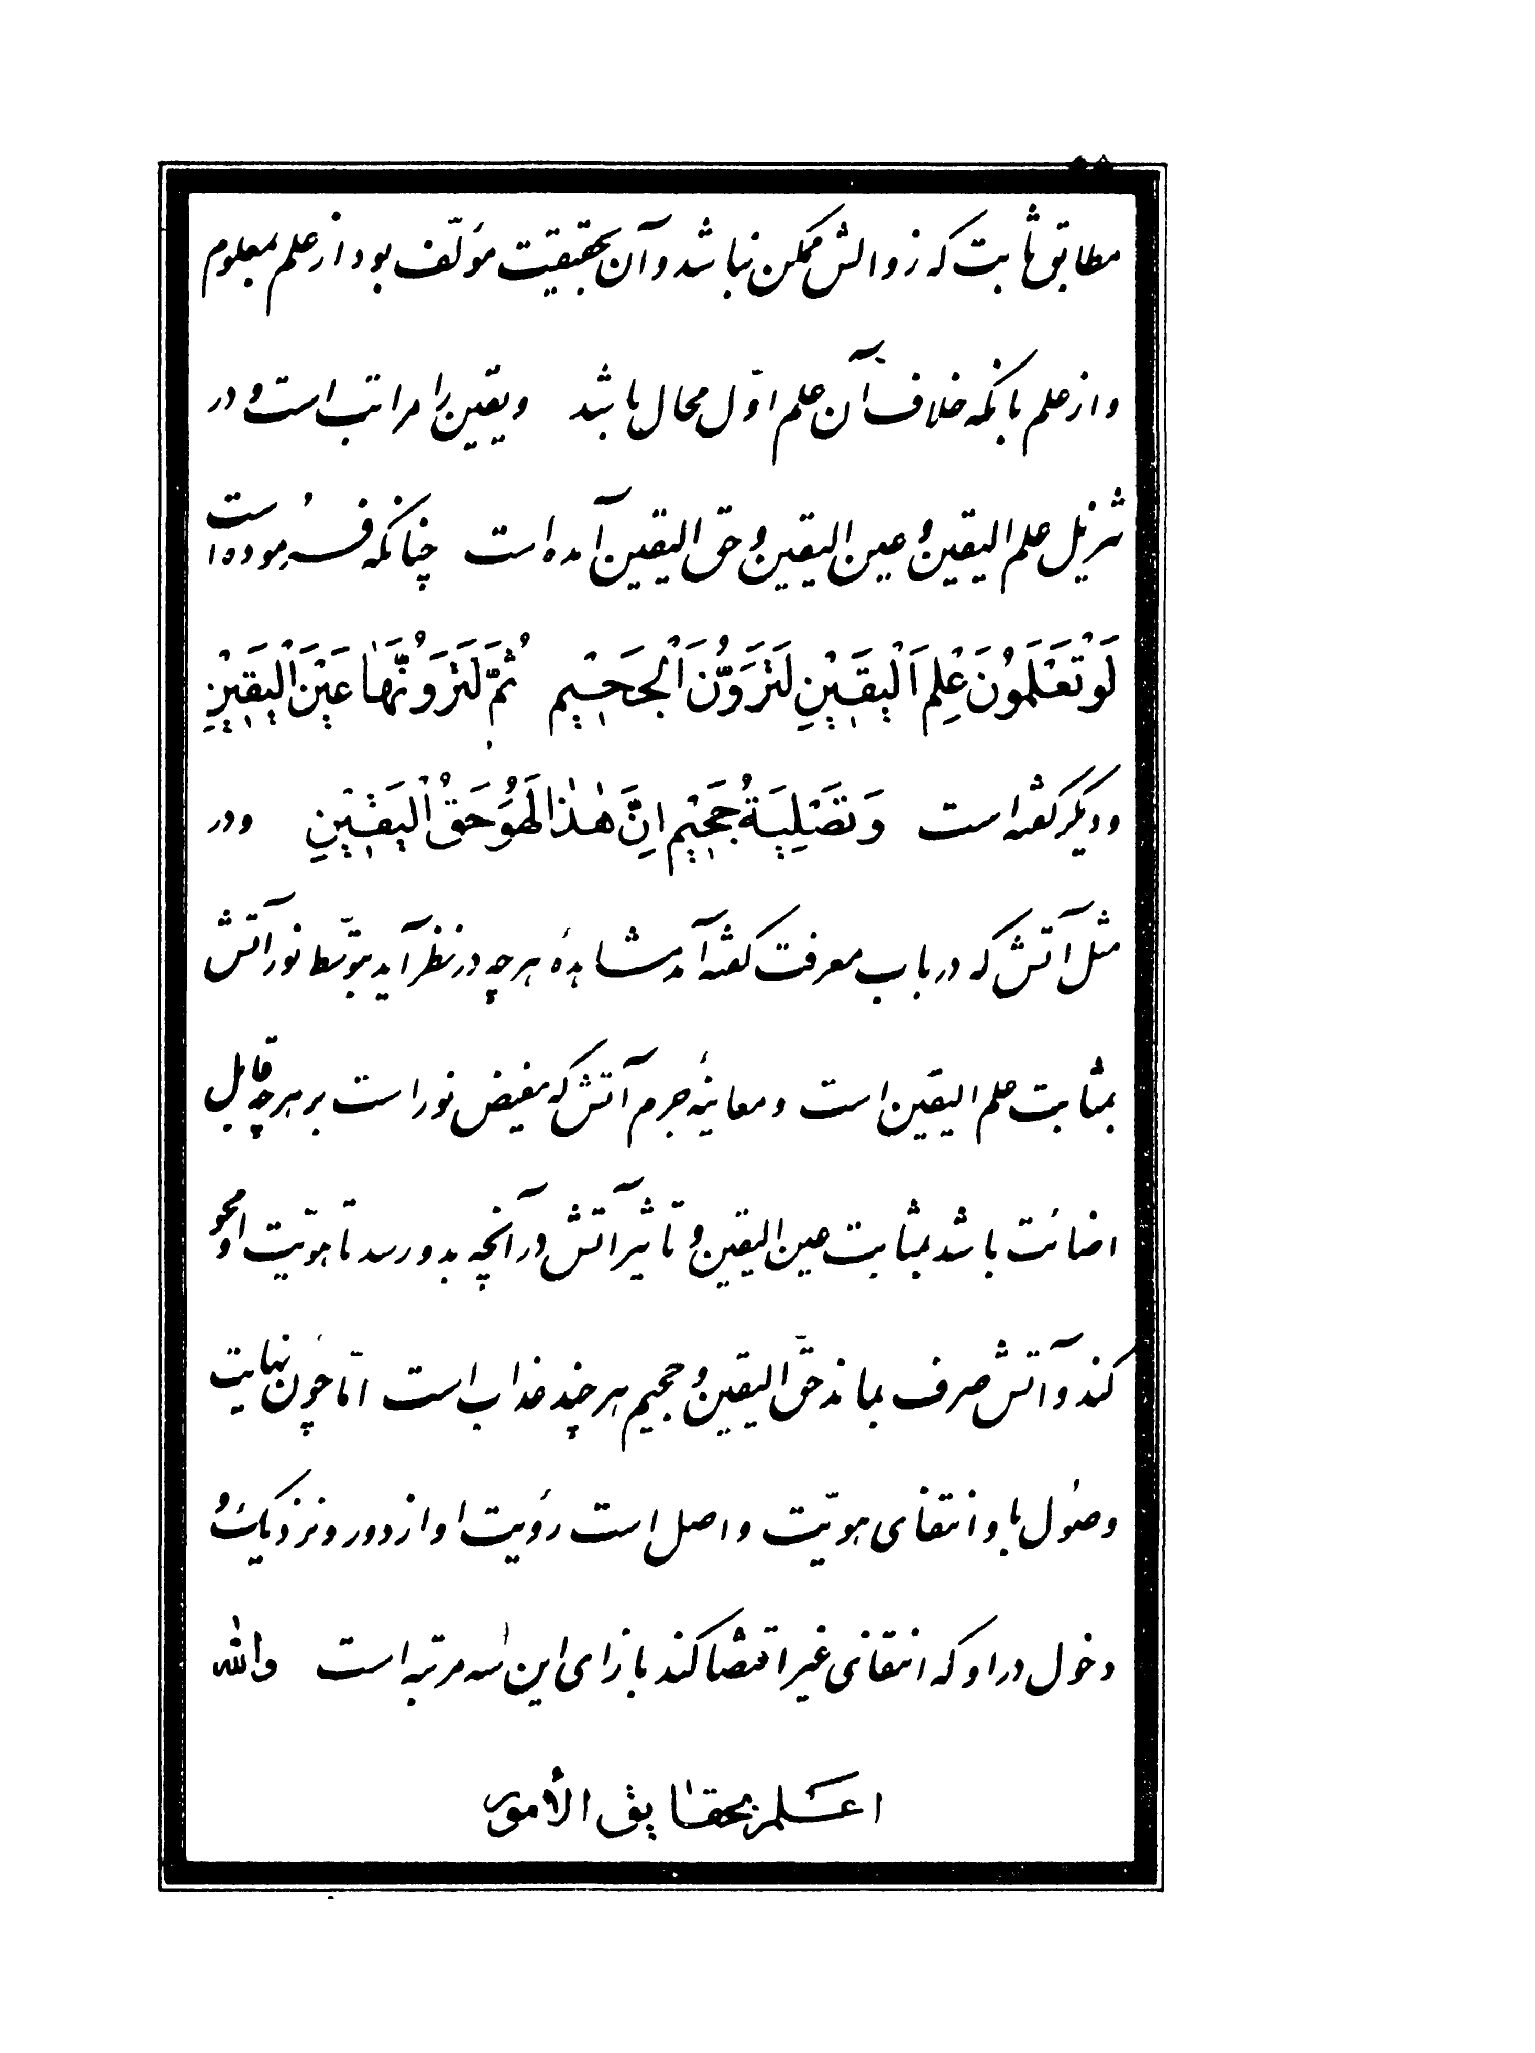 مطابق ثابت که زوالش ممکن نباشد و آن بحقیقت مؤلّف بود از علم بمعلوم
و از علم بانکه خلاف آن علم اوّل محال باشد و یقین را مراتب است و در
تنزیل علم الیقین و عین الیقین و حق الیقین آمده است چنانکه فرموده است
لَوْ تَعْلَمُونَ عِلْمَ الْيَقِينِ لَتَرَوُنَّ الْجَحِيمَ ثُمَّ لَتَرَوُنَّهَا عَيْنَ الْيَقِينِ
و دیگر گفته است وَ تَصْلِيَةُ جَحِيمٍ اِنَّ هٰذا لَهُوَ حَقُّ الْيَقِينِ و در
مثل آتش که در باب معرفت گفته آمد مشاهدهٔ هرچه در نظر آید بتوسّط نور آتش
بمثابت علم الیقین است و معاینهٔ جرم آتش که مفیض نور است بر هرچه قابل
اضائت باشد بمثابت عین الیقین و تاثیر آتش در آنچه بدو رسد تا هویّت او محو
کند و آتش صرف بماند حقّ الیقین و جحیم هر چند عذاب است امّا چون نهایت
وصول باو انتفای هویّت واصل است رؤیت او از دور و نزدیک و
دخول در او که انتفای غیر اقتضا کند بازای این سه مرتبه است والله
اعلم بحقایق الأمور